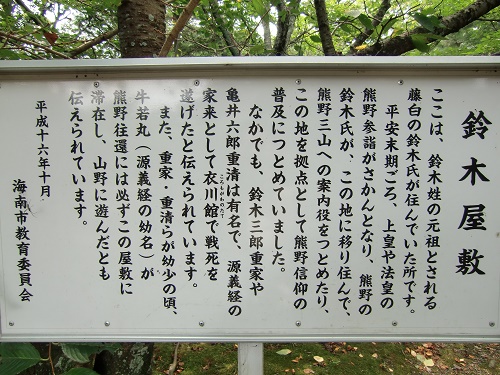 鈴木屋敷
ここは、鈴木姓の元祖とされる
藤白の鈴木氏が住んでいた所です。
平安末期ごろ、上皇や法皇の
熊野参詣がさかんとなり、熊野の
鈴木氏が、この地に移り住んで、
熊野三山への案内役をつとめたり、
この地を拠点として熊野信仰の
普及につとめていました。
なかでも、鈴木三郎重家や
亀井六郎重清は有名で、源義経の
家来として衣川館で戦死を
ころもがわのたて
遂げたと伝えられています。
また、重家・重清らが幼少の頃、
牛若丸（源義経の幼名）が
熊野往還には必ずこの屋敷に
滞在し、山野に遊んだとも
伝えられています。
平成十六年十月
海南市教育委員会